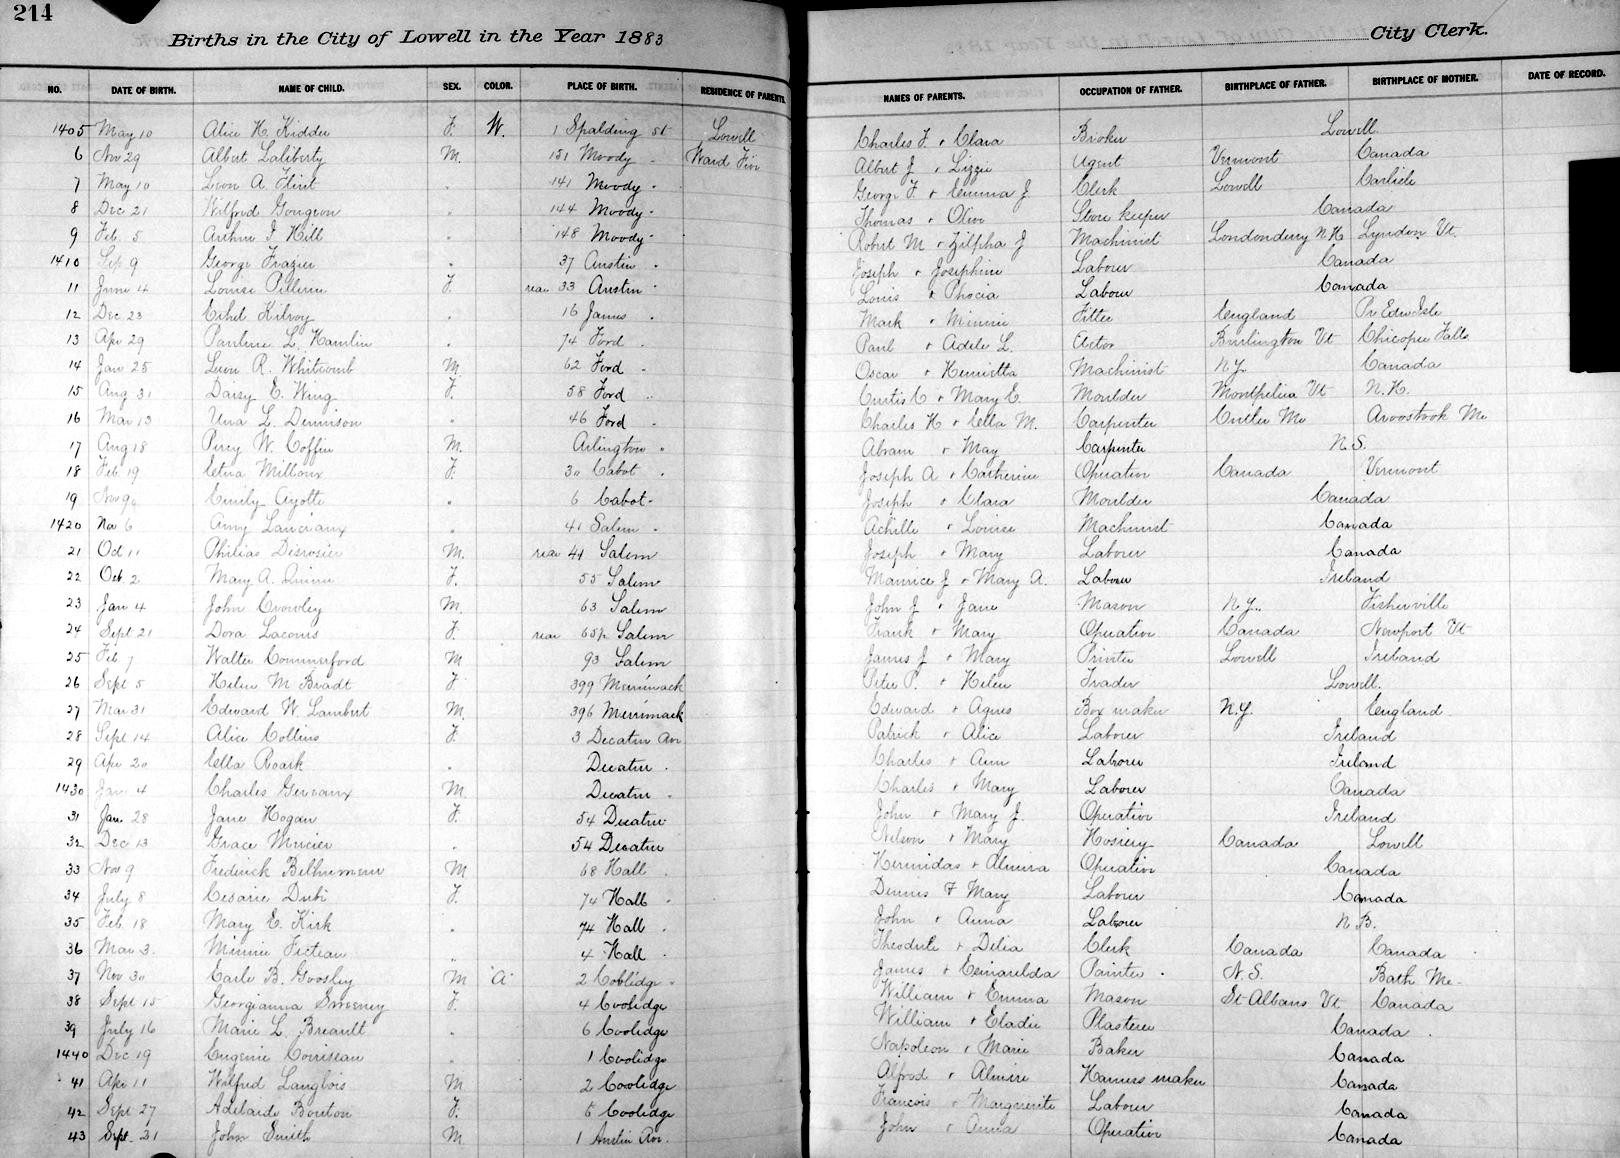 214
Births in the City of Lowell in the Year 1883 City Clerk.
NO. DATE OF BIRTH. NAME OF CHILD. SEX. COLOR. PLACE OF BIRTH. RESIDENCE OF PARENTS. NAMES OF PARENTS. OCCUPATION OF FATHER. BIRTHPLACE OF FATHER. BIRTHPLACE OF MOTHER. DATE OF RECORD.
1405 May 10 Alice H. Kidder F. W. 1 Spalding St Lowell Charles F + Clara Broker Lowell
6 Nov 29 Albert Laliberty M. 151 Moody Ward Five Albert J + Lizzie Agent Vermont Canada
7 May 10 Leon A. Flint " 141 Moody " George F. + Emma J Clerk Lowell Carlisle
8 Dec 21 Wilfred Gougeon " 144 Moody " Thomas + Olive Store keeper Canada
9 Feb. 5 Arthur I. Hill " 148 Moody " Robert M + Zilpha J Machinist Londonderry N.H. Lyndon Vt.
1410 Sep 9 George Frazier " 37 Austin " Joseph + Josephine Laborer Canada
11 June 4 Louise F. rear 33 Austin " Louis + Laborer Canada
12 Dec 23 Ethel Kilroy " 16 James " Mark + Minnie Fitter England Pr Edw Isle
13 Apr 29 Pauline L. Hamlin " 74 Ford " Paul + Adele L. Actor Burlington Vt Chicopee Falls
14 Jan 25 Leon R. Whitcomb M. 62 Ford " Oscar + Henrietta Machinist N.Y. Canada
15 Aug 31 Daisy E. Wing F. 58 Ford " Curtis C + Mary E. Moulder Montpelier Vt N.H.
16 Mar 13 Una L. Dennison " 46 Ford " Charles H + Ella M. Carpenter Cutler Me Aroostook Me
17 Aug 18 Percy W. Coffin M. Arlington " Abram + May Carpenter N.S.
18 Feb 19 Etna Milloux F. 30 Cabot " Joseph A + Catherine Operative Canada Vermont
19 Nov Emily Ayotte " 6 Cabot " Joseph + Clara Moulder Canada
1420 Nov 6 Amy " 41 Salem " Achille + Louise Machinist Canada
21 Oct 11 Philias Desrosier M. rear 41 Salem Joseph + Mary Laborer Canada
22 Oct 2 Mary A. Quinn F. 55 Salem Maurice J + Mary A. Laborer Ireland
23 Jan 4 John Crowley M. 63 Salem John J + Jane Mason N.Y. Fisherville
24 Sept 21 Dora Lacours F. rear 65½ Salem Frank + Mary Operative Canada Newport Vt
25 Feb 7 Walter Commerford M 93 Salem James J + Mary Printer Lowell Ireland
26 Sept 5 Helen M Bradt F. 399 Merrimack Peter P. + Helen Trader Lowell.
27 Mar 31 Edward W. Lambert M. 396 Merrimack Edward + Agnes Box maker N.Y. England
28 Sept 14 Alice Collins F. 3 Decatur Av. Patrick + Alice Laborer Ireland
29 Apr 20 Ella Roark " Decatur " Charles + Ann Laborer Ireland
1430 Jan 4 Charles Gervaux M. Decatur " Charles + Mary Laborer Canada
31 Jan. 28 Jane Hogan F. 54 Decatur John + Mary J. Operative Ireland
32 Dec 13 Grace Mercier " 54 Decatur Nelson + Mary Hosiery Canada Lowell
33 Nov 9 Fredrick M 68 Hall " Hermidas + Almira Operative Canada
34 July 8 Cesarie Dubi F. 74 Hall " Dennis + Mary Laborer Canada
35 Feb. 18 Mary E. Kirk " 74 Hall " John + Anna Laborer N.B.
36 Mar 3. Minnie Ficteau " 4 Hall " Theodule + Delia Clerk Canada Canada
37 Nov 30 Earle B. Goosley M A 2 Coolidge " James + Esmarelda Painter N.S. Bath Me
38 Sept 15 Georgianna Sweeney F. 4 Coolidge William + Emma Mason St Albans Vt Canada
39 July 16 Marie L. Breault " 6 Coolidge William + Eladie Plasterer Canada
1440 Dec 19 Eugenie " 1 Coolidge Napoleon + Marie Baker Canada
41 Apr 11 Wilfred Langlois M 2 Coolidge Alfred + Almire Harness maker Canada
42 Sept 27 Adelaide Bouton F. 6 Coolidge Francois + Marguerite Laborer Canada
43 Sept. 21 John Smith M 1 Austin Av. John + Anna Operative Canada